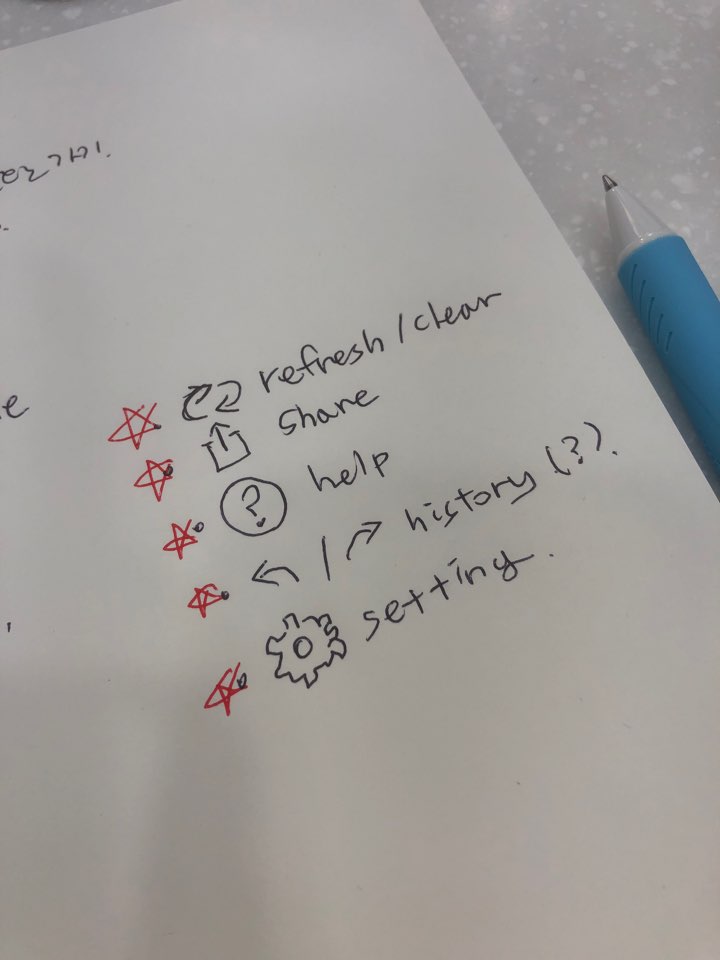 refresh / clear
share
? help
← / → history (?).
setting.